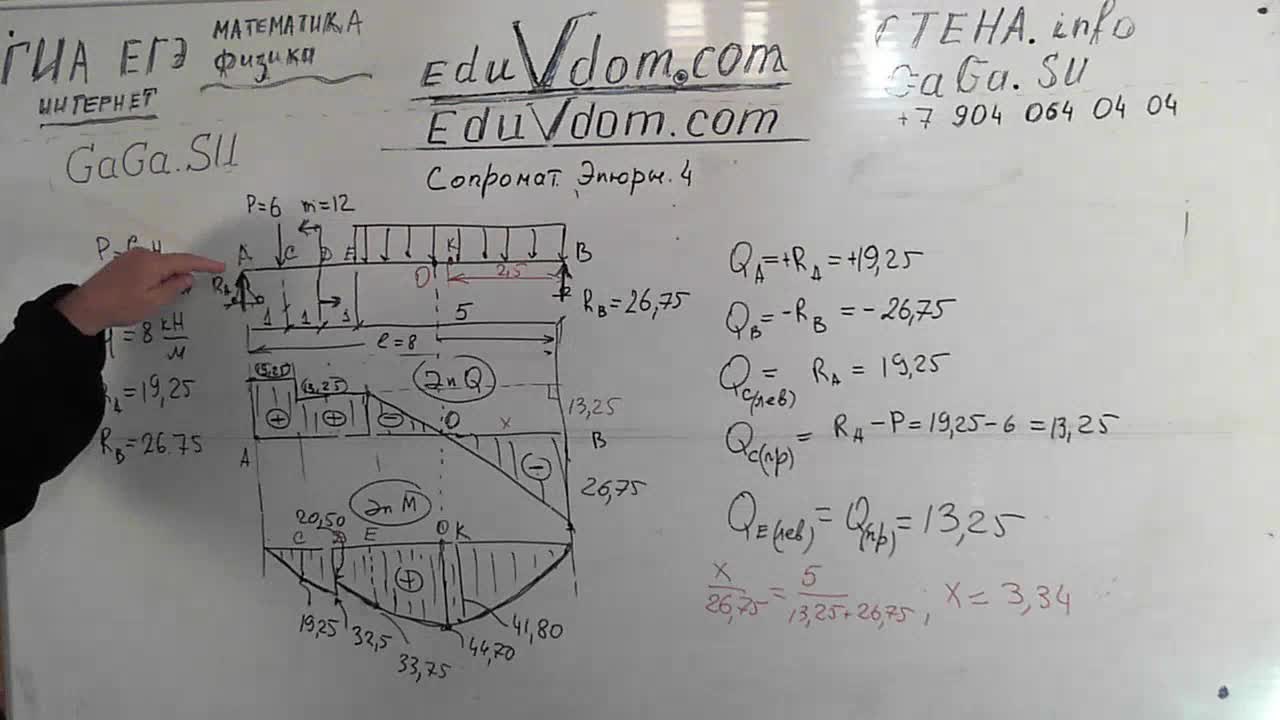 ГИА ЕГЭ
МАТЕМАТИКА
физика
ИНТЕРНЕТ
GaGa.SU
EduVdom.com
EduVdom.com
СТЕНА.info
GaGa.SU
+7 904 064 04 04
Сопромат. Эпюры. 4
P=6 m=12
A C D E K B
O 2,5
R_A
R_B=26,75
1 1 1 5
ℓ=8
= 8 кН/м
R_A = 19,25
R_B=26.75
Эп Q
19,25
13,25
+ + − O x
13,25
A B
−
26,75
Эп M
20,50
C D E O K
+
19,25
32,5
33,75
44,70
41,80
Q_A=+R_A=+19,25
Q_B=-R_B=-26,75
Q_C(лев)= R_A = 19,25
Q_C(пр)= R_A-P=19,25-6=13,25
Q_E(лев)=Q_(пр)=13,25
x/26,75 = 5/13,25+26,75; x=3,34